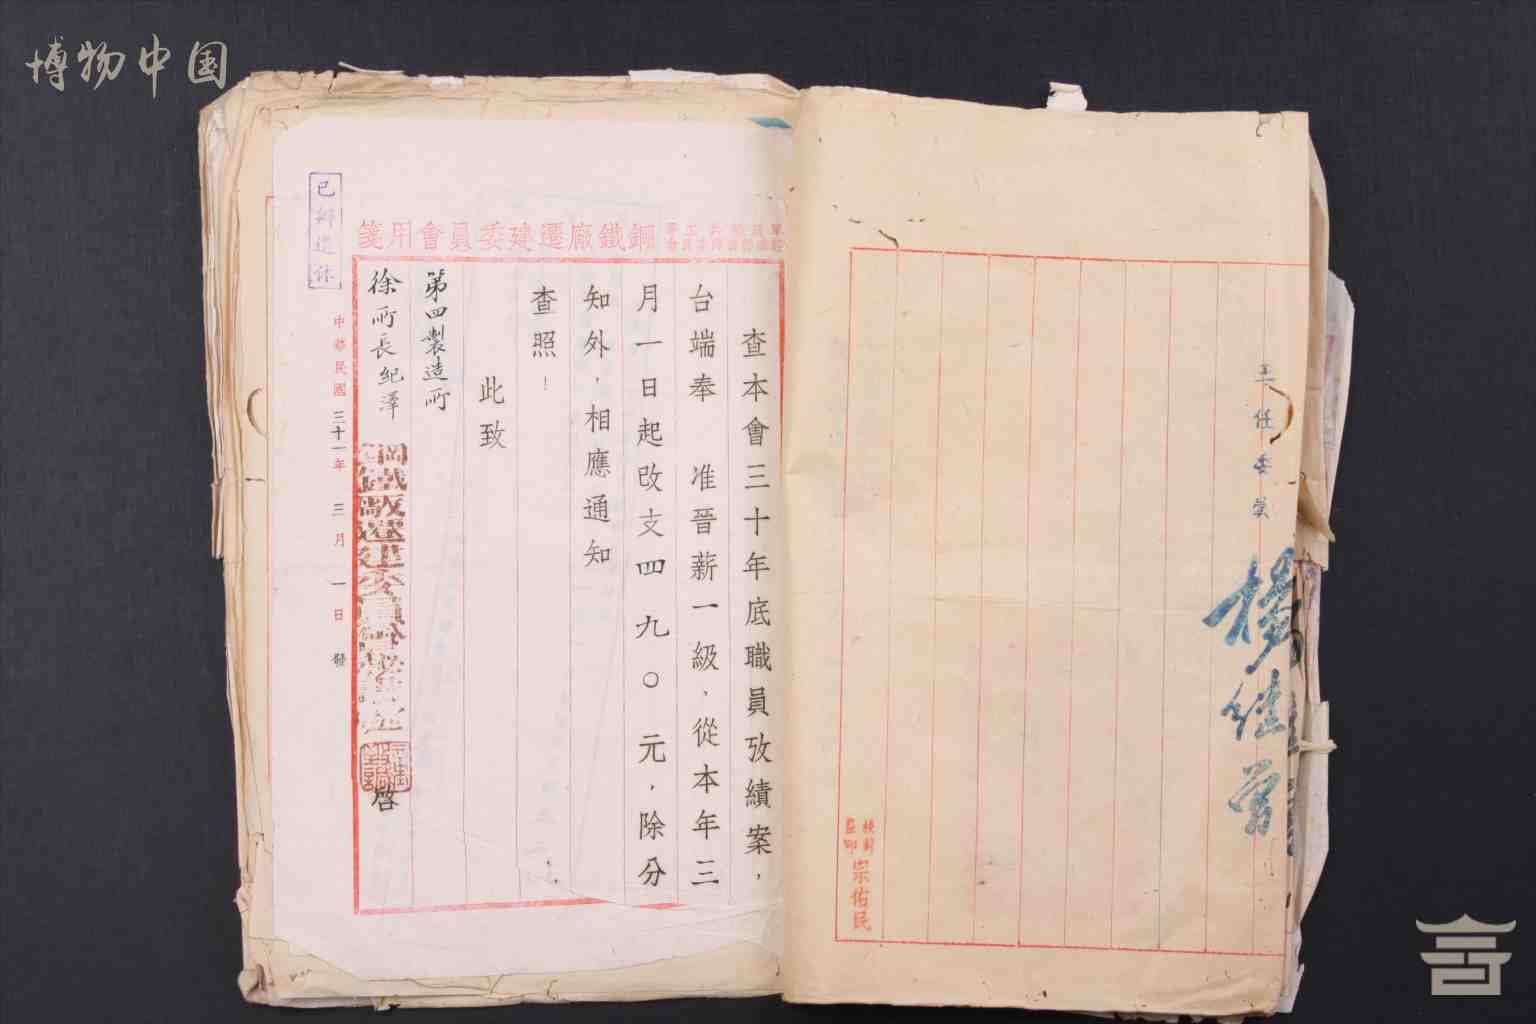 博物中国
主任委員
楊继曾
校對
監印
宗佑民
鋼鐵廠遷建委員會用箋
查本會三十年底職員攷績案，
台端奉　准晉薪一級，從本年三
月一日起改支四九〇元，除分
知外，相應通知
查照！
此致
第四製造所
徐所長紀澤
鋼鐵廠遷建委員會
啓
中華民國三十一年三月一日發
已辦